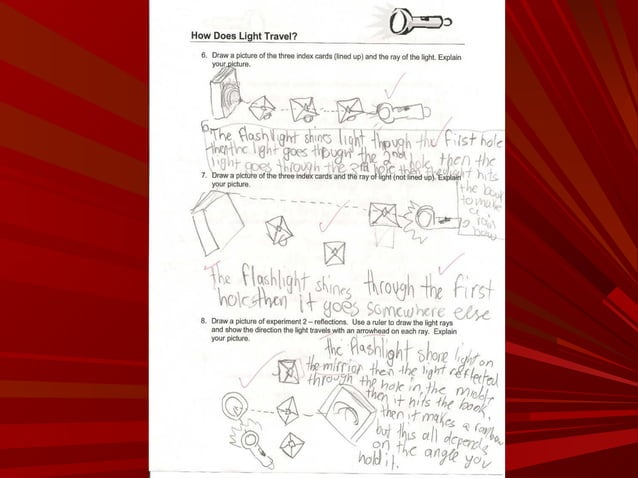 How Does Light Travel?
6. Draw a picture of the three index cards (lined up) and the ray of the light. Explain
your picture.
6.
The flashlight shines light through the first hole
then the light goes through the 2nd hole, then the
light goes through the 3rd hole then the light hits
the book
to make
a
rain
bow
7. Draw a picture of the three index cards and the ray of light (not lined up). Explain
your picture.
The flashlight shines through the first
hole then it goes somewhere else
8. Draw a picture of experiment 2 – reflections. Use a ruler to draw the light rays
and show the direction the light travels with an arrowhead on each ray. Explain
your picture.
the flashlight shore light on
the mirrior then the light reflected
through the hole in the middle
then it hits the book,
then it makes a rainbow
but this all depends
on the angle you
hold it.